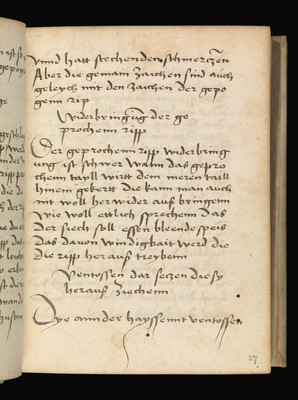 vnnd hatt stechenden schmerczen
Aber die gemain zaichen sind auch
geleych mit den zaichen der gepo
genn rip
Widerbringung der ge
prochenn ripp
Der geprochenn ripp widerbring
ung ist schwer wann das gepro
chenn tayll wirt dem meren taill
hinein gekertt die kann man auch
nit woll herwider auf bringenn
wie woll ettlich sprechenn das
der siech soll essen bleendespeis
das davon windigkait werd die
die ripp herauß treybenn
Ventossen dar setzen die sy
herauß ziechenn
Dye annder hayssennt ventossen
27